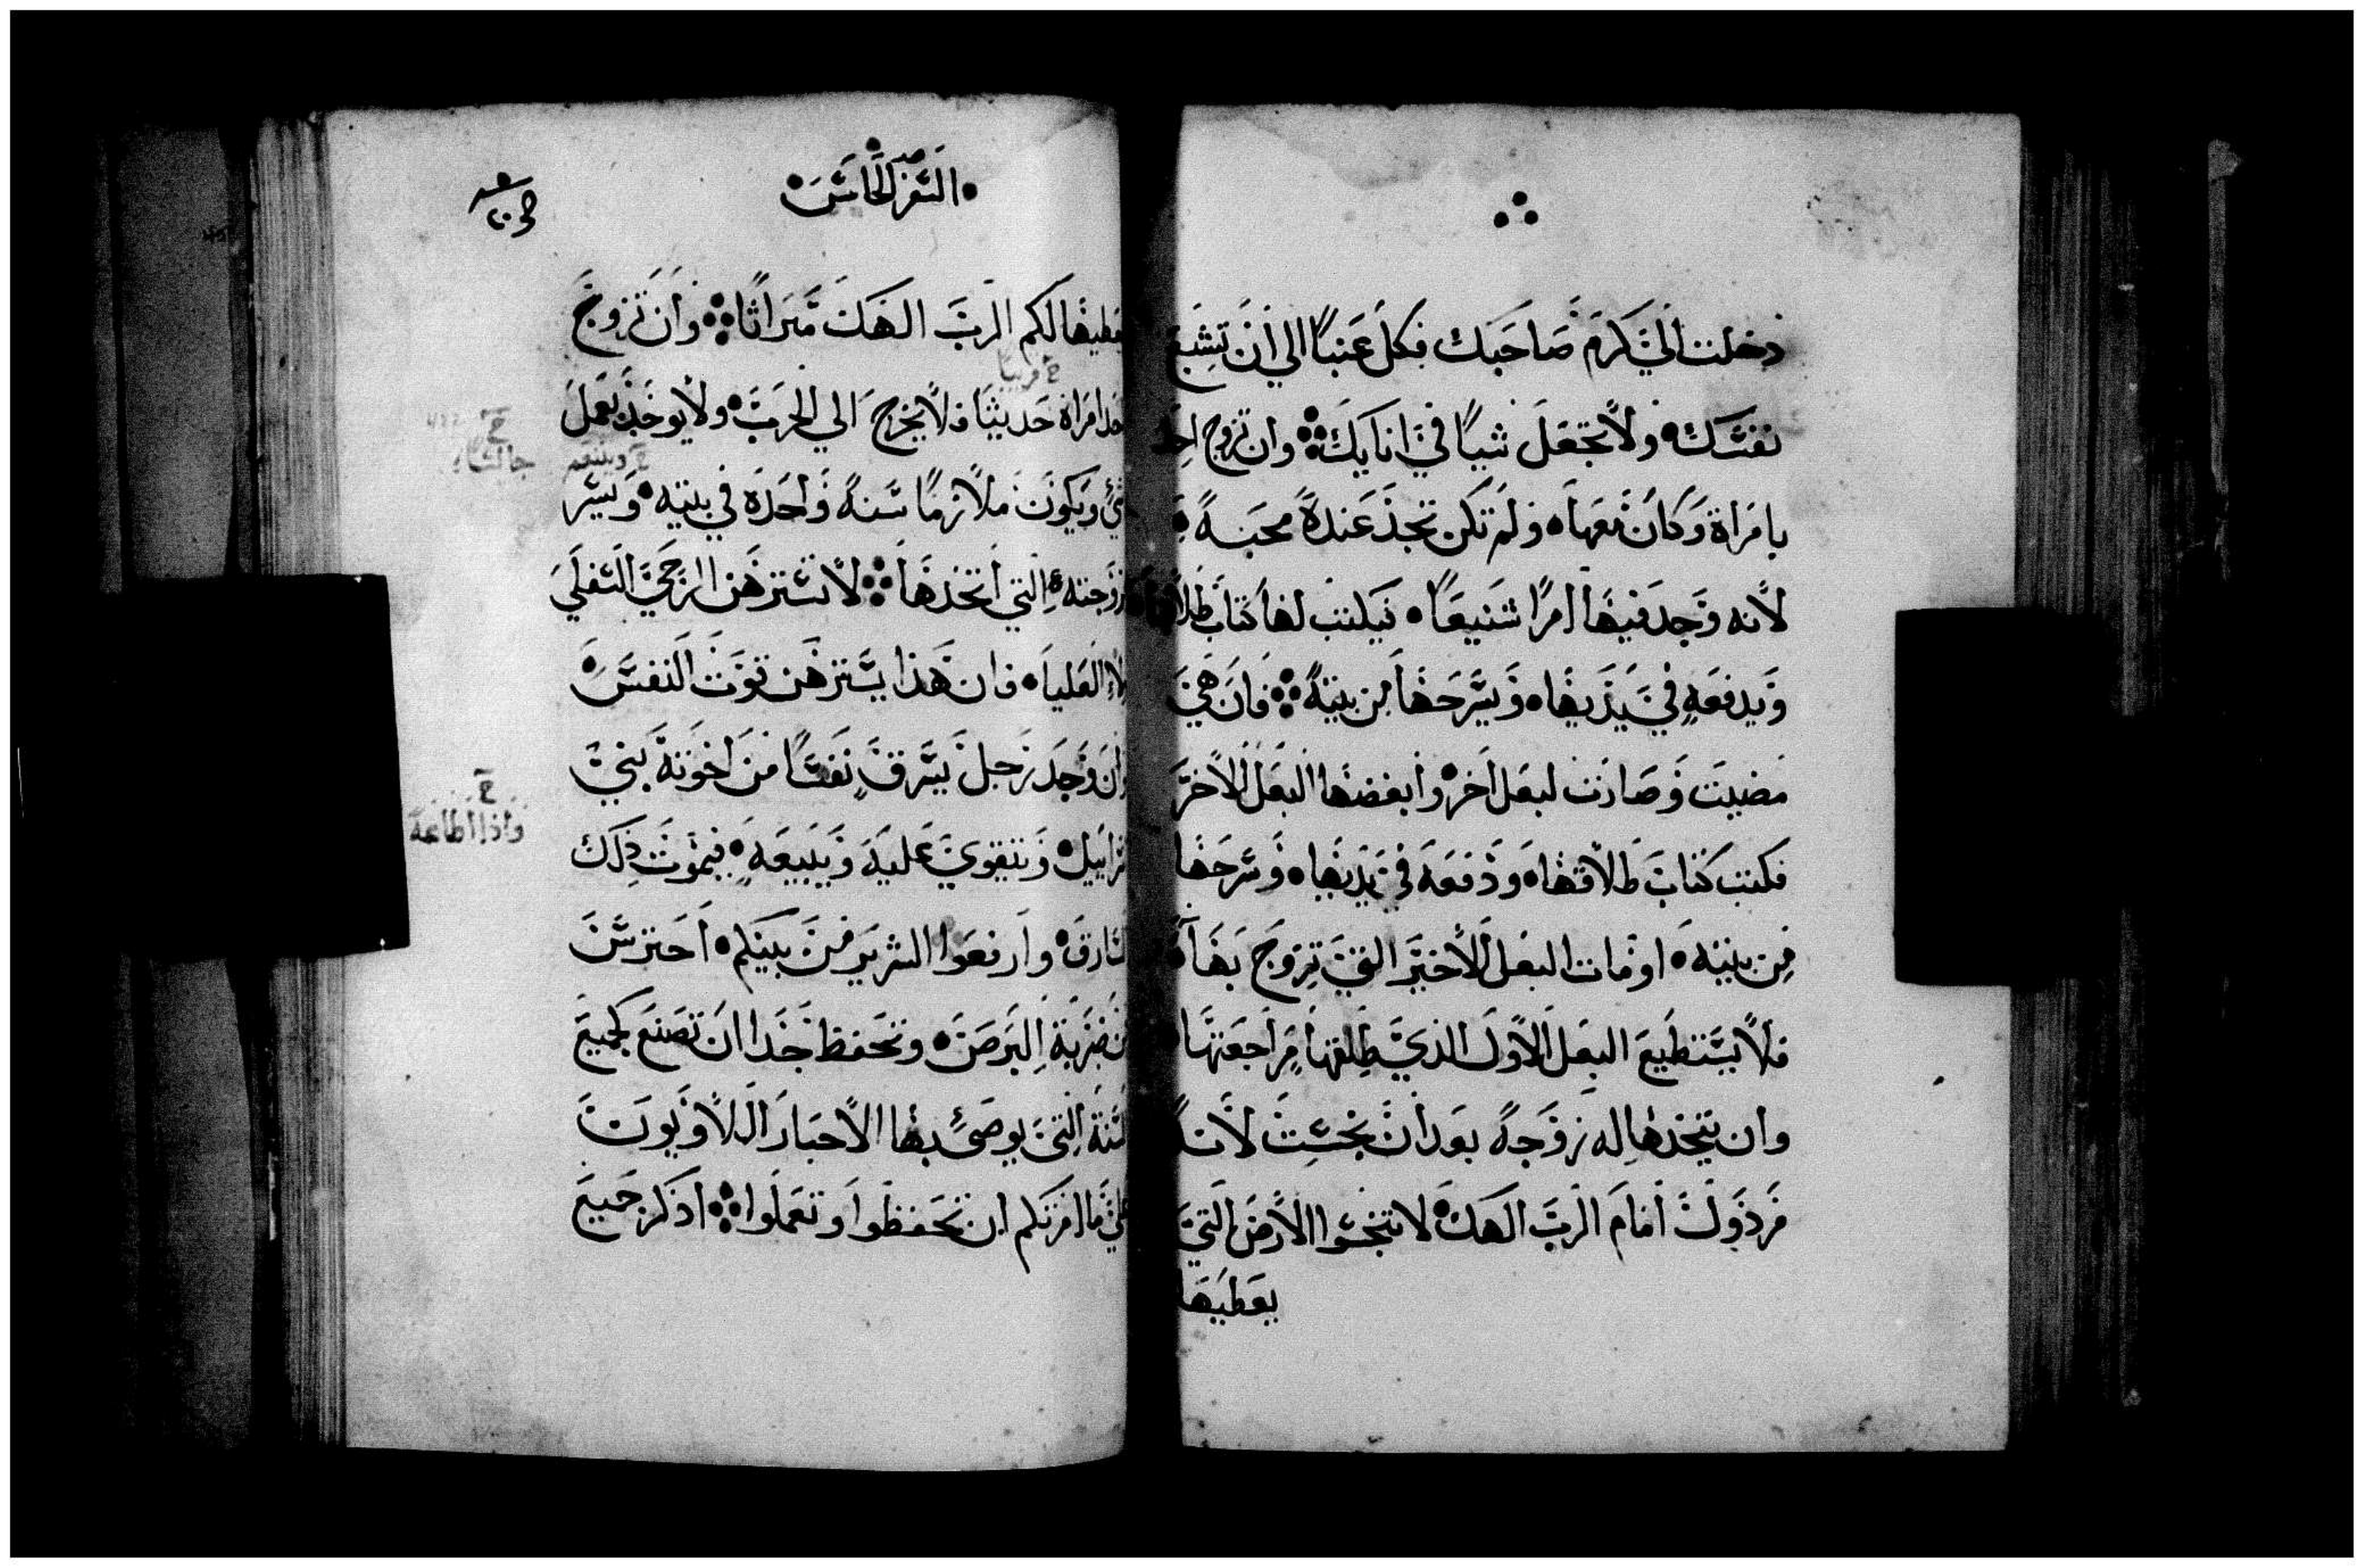 دخلت الي كرم صاحبك فكل عنباً الي ان تشبع
نفسك ولا تجعل شياً في انايك وان تزوج احد
بامراة وكان معها ولم تكن تجد عنده محبة
لانه وجد فيها امراً شنيعاً فيكتب لها كتاب طلاقها
ويدفعه في يديها ويسرحها من بيته فان هي
مضيت وصارت لبعل اخر وابغضها البعل الاخر
فكتب كتاب طلاقها ودفعه في يديها وسرحها
من بيته او مات البعل الاخير التي تزوج بها
فلا يستطيع البعل الاول الذي طلقها مراجعتها
وان يتخذها له زوجة بعد ان نجست لانه
مرذولت امام الرب الهك لا تنجسوا الارض التي
يعطيها
السفر الخامس
يعطيها لكم الرب الهك ميراثا وان تزوج
قريبا
احد امراة حديثا فلا يخرج الي الحرب ولا يوخذ بعمل
وينعم
شي ويكون ملازما سنة واحدة في بيته ويسر
زوجته التي اتخذها لا تسترهن الرحي السفلي
ولا العليا فان هذا يسترهن قوت النفس
وان وجد رجل يسرق نفسا من اخوته بني
اسراييل ويتقوي عليه ويبيعه فيموت ذلك
واذا اطاعة
السارق وارفعوا الشرير من بينكم احترس
من ضربة البرص وتحفظ جدا ان تصنع كجميع
السنة التي يوصي بها الاحبار اللاويون
علي ما امرتكم ان تحفظوا وتعملوا اذكر جميع